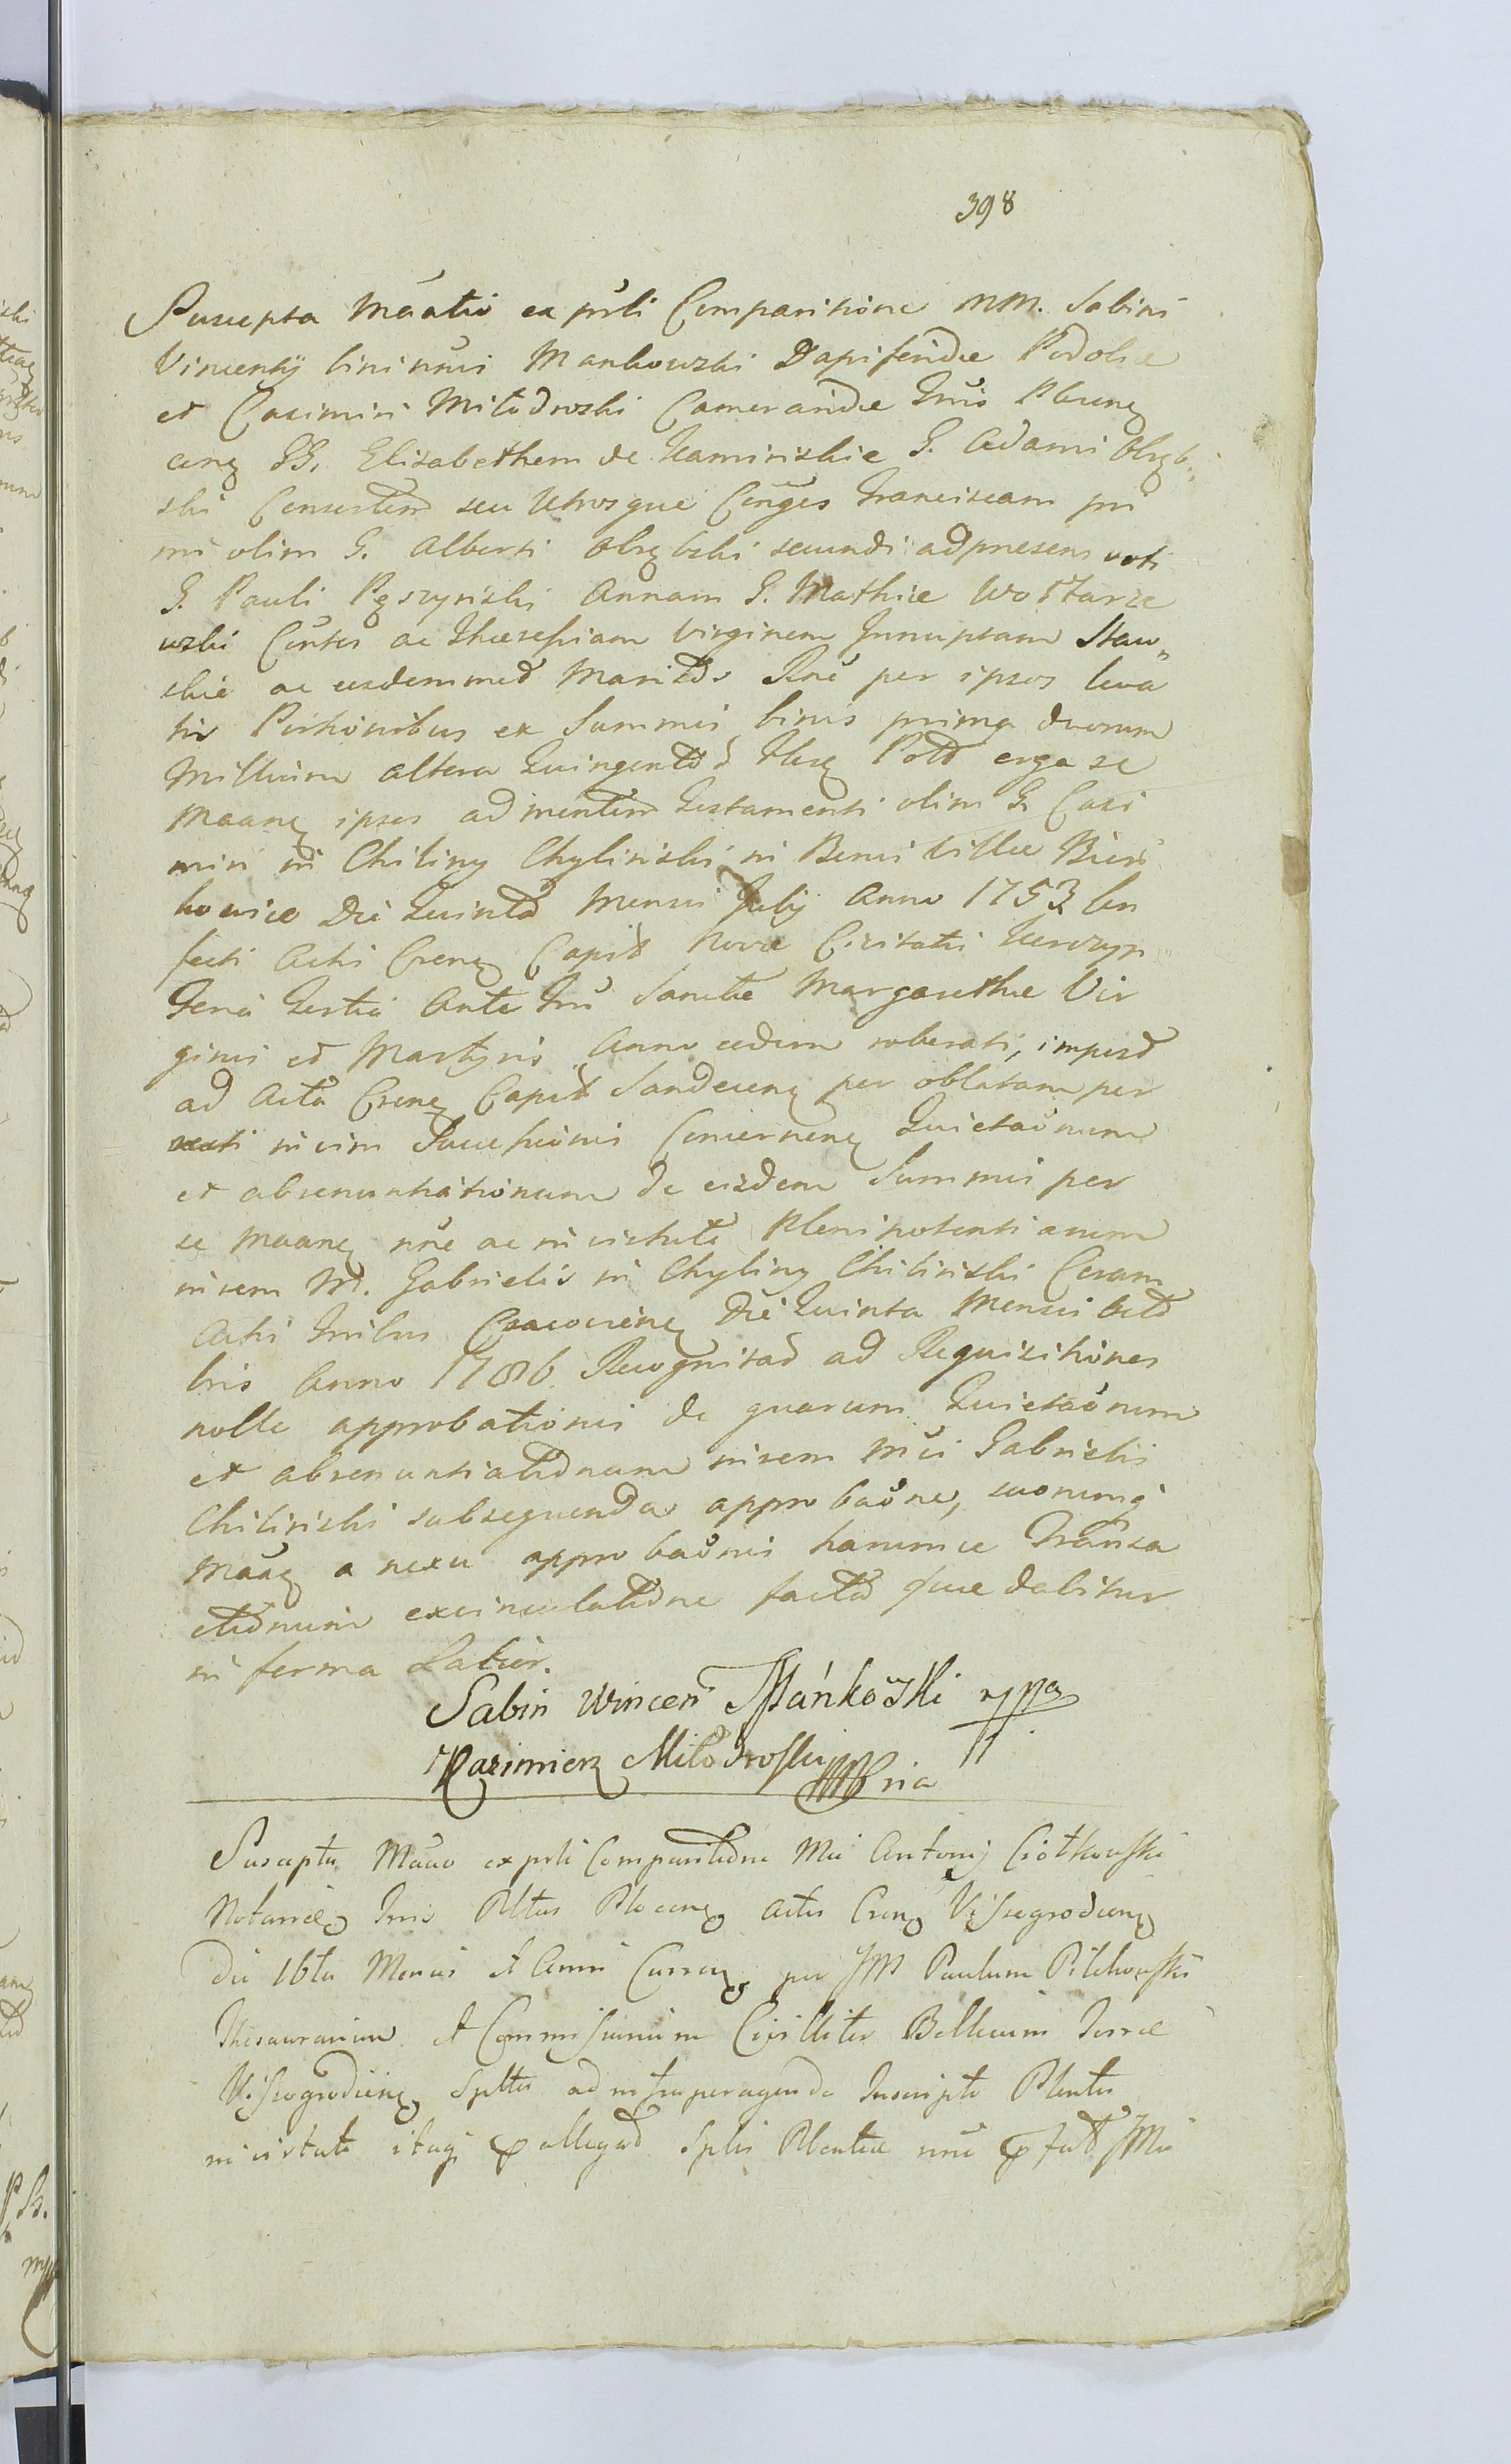 398
Suscepta Maatio ex prsti Comparitione MM. Sabini
Vincentij binimni Mankowski Dapiferidæ Podoliæ
et Casimiri Miłodroski Cameraridæ Trris Plocen
cens GG. Elisabetham de Kaminskie G. Adami Obręb
ski Consortem seu Utrosque Conges Franciscam pri
mi olim G. Alberti Obrębski secundi ad presens voti
G. Pauli Pęszyński Annam G. Mathiæ Wottarze
wski Contes ac Theresiam Virginem Innuptam Staw„
skie ac eisdem med Maritos Rne per ipsos leva
tis Portionibus ex Summis binis prima duorum
Millium altera Quingentor flnr Poll erga se
Maane ipsos ad mentem Testamenti olim G. Casi
miri in Chiliny Chyliński in Bonis Villæ Bień
kowice Die Quinta Mensis Julij Anno 1753 Con
fecti Actis Crens Capit Novæ Civitatis Korczyn
Feria Tertia Ante Ftū Sanctæ Margarethæ Vir
ginis et Martyris Anno eodem roborati, impost
ad Acta Crens Capit Sandecens per oblatam por
recti in vim Successionis Concernen Quietaonum
et abrenuntiationum de eisdem Summis per
se Maane nne ac in virtute Plenipotentiarum
in rem M. Gabrielis in Chyliny Chiliński Coram
Actis Trribus Cracoviens Die Quinta Mensis Octo
bris Anno 1786 Recognitar ad Requisitiones
nolle approbationis de quarum Quietaonum
et abrenuntiationum in rem Mci Gabrielis
Chiliński subsequenda approbaone, suorumq
Maane a nexu approbaonis harumce Transa
ctionum exvinculatione facta quæ dabitur
in forma Latiori.
Sabin Wincen Mańkoski mpa
Kazimierz Miłodroski MPria
Suscepta Maao ex prsti Comparitione Mci Antonij Ciołkowski
Notarii Trris Pltus Plocens actis Crens Vissegrodiens
die 16ta Mensis et Anni Curren per JM Paulum Pilchowski
Thesaurarium et Commissarium Civilliter Bellicum Terræ
Vissogrodiens Spltes ad ... peragenda Inscripte Plentes
in virtute itaq allegad Splis Plentiæ nne fat JMci